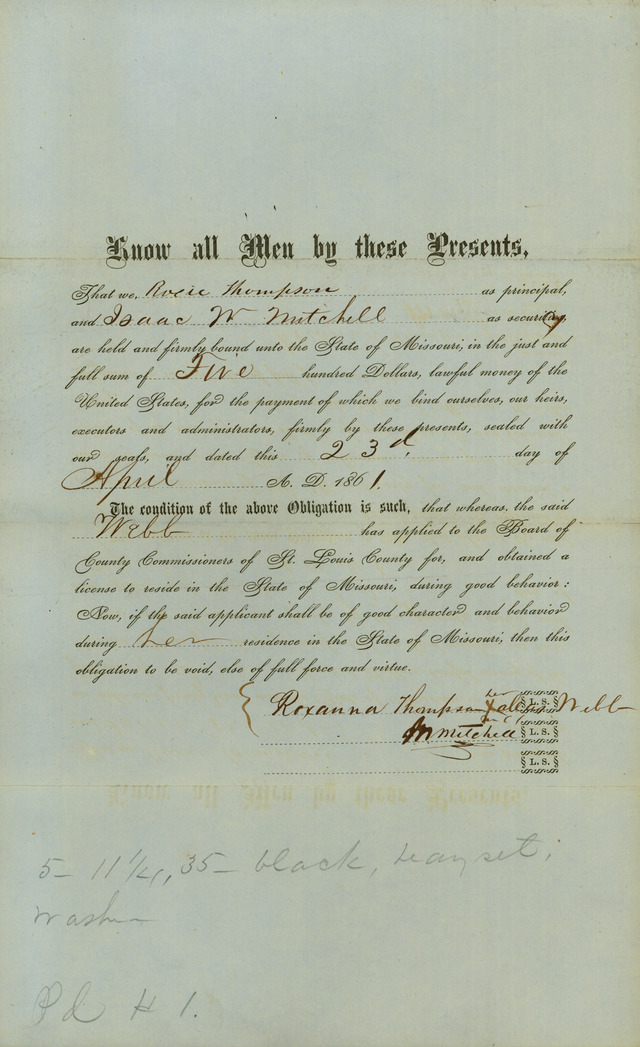 Know all Men by these Presents,
That we, Roxie Thompson as principal,
and Isaac W Mitchell as security
are held and firmly bound unto the State of Missouri, in the just and
full sum of Five hundred Dollars, lawful money of the
United States, for the payment of which we bind ourselves, our heirs,
executors and administrators, firmly by these presents, sealed with
our seals, and dated this 23d. day of
April A. D. 1861.
The condition of the above Obligation is such, that whereas, the said
Webb has applied to the Board of
County Commissioners of St. Louis County for, and obtained a
license to reside in the State of Missouri, during good behavior:
Now, if the said applicant shall be of good character and behavior
during her residence in the State of Missouri, then this
obligation to be void, else of full force and virtue.
Roxanna Thompson her X alias Webb L. S.
Mitchell L. S.
L. S.
5- 11 1/4, 35- black, heavy set,
washer
Pd H 1.